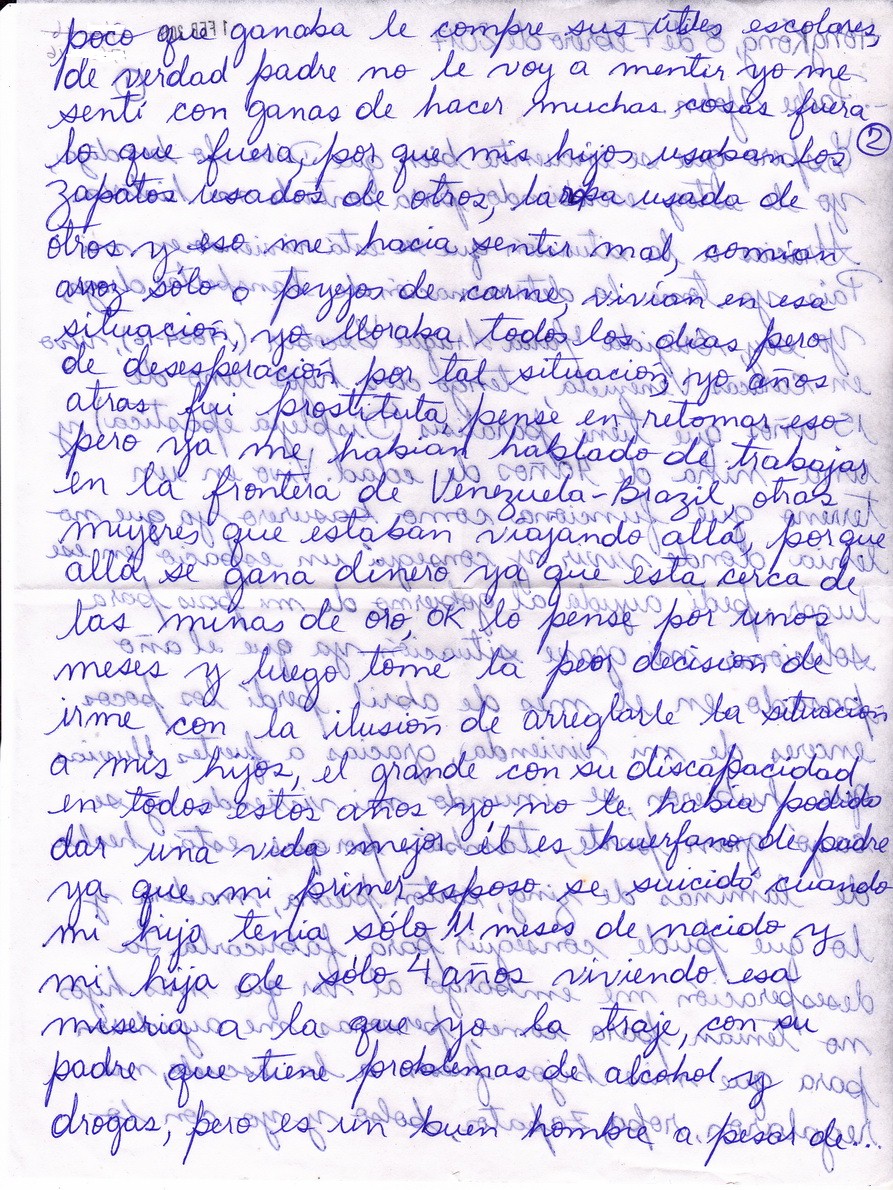 poco que ganaba le compre sus útiles escolares,
de verdad padre no le voy a mentir yo me
sentí con ganas de hacer muchas cosas fuera
lo que fuera, por que mis hijos usaban los
②
zapatos usados de otros, la ropa usada de
otros y eso me hacia sentir mal, comian
arroz sólo o peyejos de carne, vivían en esa
situación, yo lloraba todos los días pero
de desesperación por tal situación, yo años
atras fui prostituta, pense en retomar eso
pero ya me habían hablado de trabajar
en la frontera de Venezuela-Brazil otras
mujeres que estaban viajando allá, porque
allá se gana dinero ya que esta cerca de
las minas de oro, OK lo pense por unos
meses y luego tomé la peor decision de
irme con la ilusión de arreglarle la situación
a mis hijos, el grande con su discapacidad
en todos estos años yo no le habia podido
dar una vida mejor él es huerfano de padre
ya que mi primer esposo se suicidó cuando
mi hijo tenia sólo 11 meses de nacido y
mi hija de sólo 4 años viviendo esa
miseria a la que yo la traje, con su
padre que tiene problemas de alcohol y
drogas, pero es un buen hombre a pesar de...